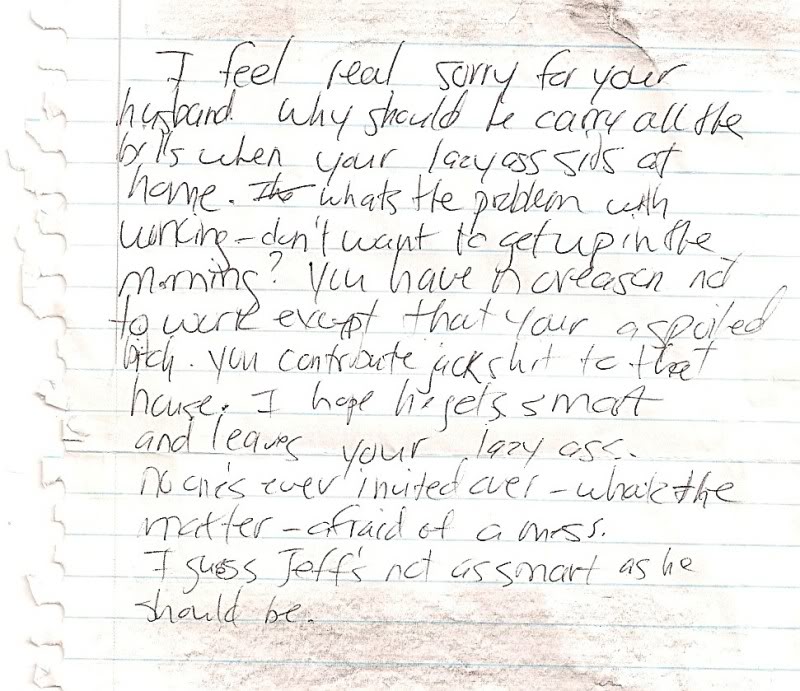 I feel real sorry for your
husband. Why should he carry all the
bills when your lazy ass sids at
home. The whats the problem with
working - don't want to get up in the
morning? You have no reason not
to work except that your a spoiled
bitch. you contribute jack shit to that
house. I hope he gets smart
and leaves your lazy ass.
no one's ever invited over - whats the
matter - afraid of a mess.
I guess Jeff's not as smart as he
should be.